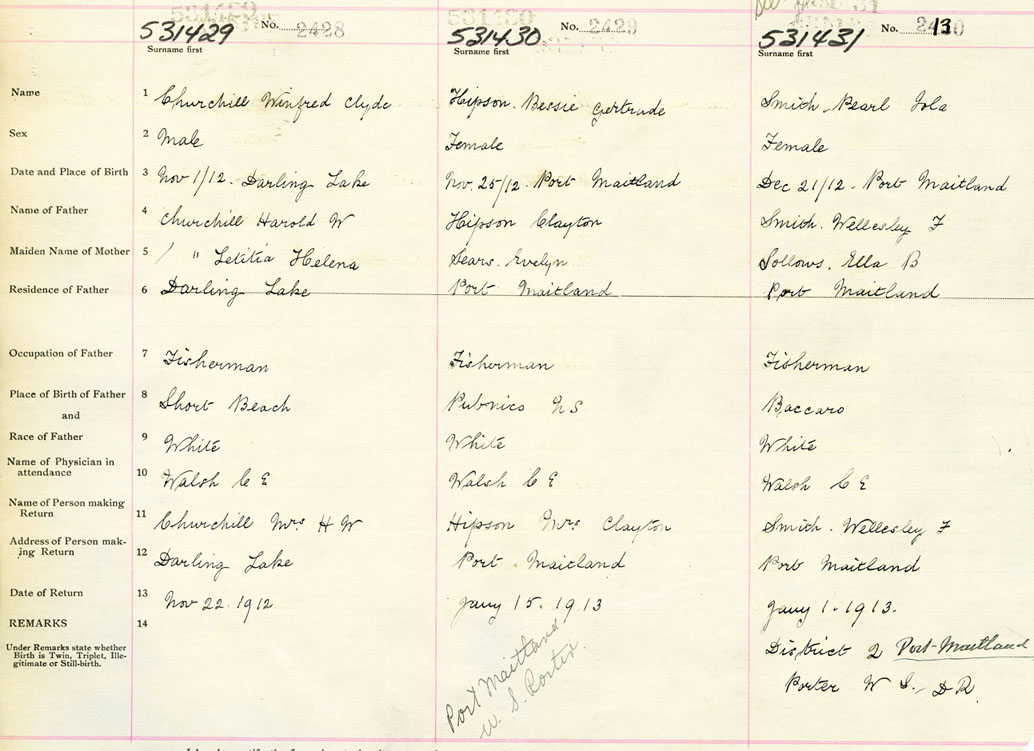 531429 No. 2428
Surname first
531430 No. 2429
Surname first
531431 No. 13
Surname first
Name 1 Churchill Winfred Clyde
Hipson. Bessie Gertrude
Smith. Pearl Iola
Sex 2 Male
Female
Female
Date and Place of Birth 3 Nov 1/12. Darling Lake
Nov. 25/12. Port Maitland
Dec 21/12. Port Maitland
Name of Father 4 Churchill Harold W
Hipson Clayton
Smith. Wellesley F
Maiden Name of Mother 5 / " Letitia Helena
Sears. Evelyn
Sollows. Ella B
Residence of Father 6 Darling Lake
Port Maitland
Port Maitland
Occupation of Father 7 Fisherman
Fisherman
Fisherman
Place of Birth of Father 8 Short Beach
Pubnico NS
Baccaro
and
Race of Father 9 White
White
White
Name of Physician in
attendance 10 Walsh C E
Walsh C E
Walsh C E
Name of Person making
Return 11 Churchill Mrs H W
Hipson Mrs Clayton
Smith. Wellesley F
Address of Person mak-
ing Return 12 Darling Lake
Port Maitland
Port Maitland
Date of Return 13 Nov 22. 1912
Jany 15. 1913
Jany 1. 1913.
REMARKS 14
Under Remarks state whether
Birth is Twin, Triplet, Ille-
gitimate or Still-birth.
Port Maitland
W. S. Porter.
District 2 Port Maitland
Porter W S. DR